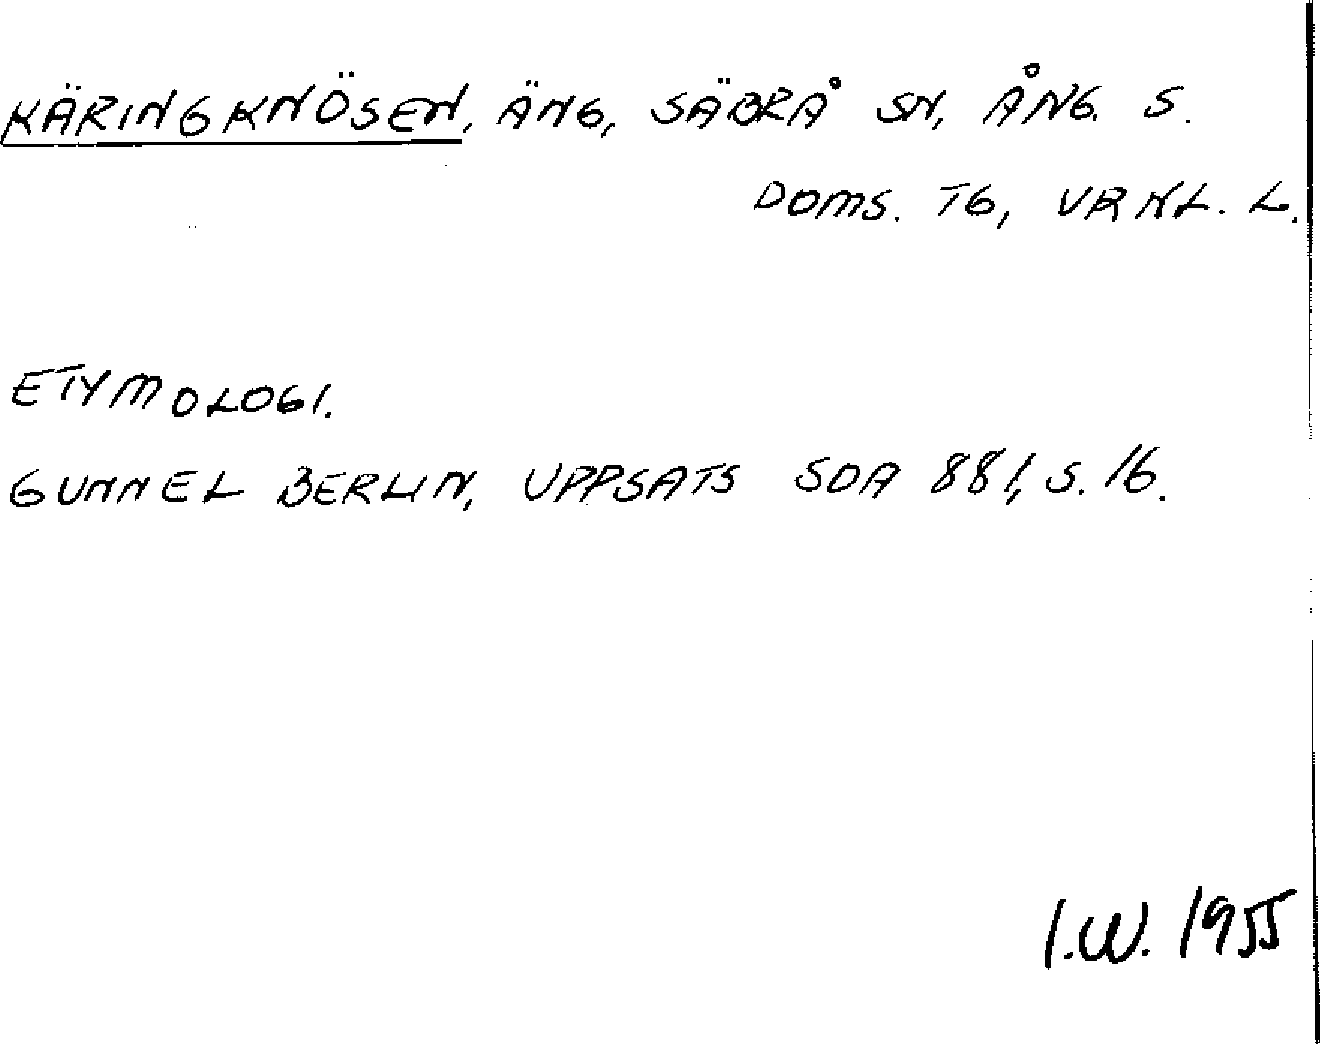 KÄRINGKNÖSEN, ÄNG, SÄBRÅ SN, ÅNG. S.
DOMS. T6, VRNL. L.
ETYMOLOGI.
GUNNEL BERLIN, UPPSATS SOA 881, S. 16.
I.W. 1955